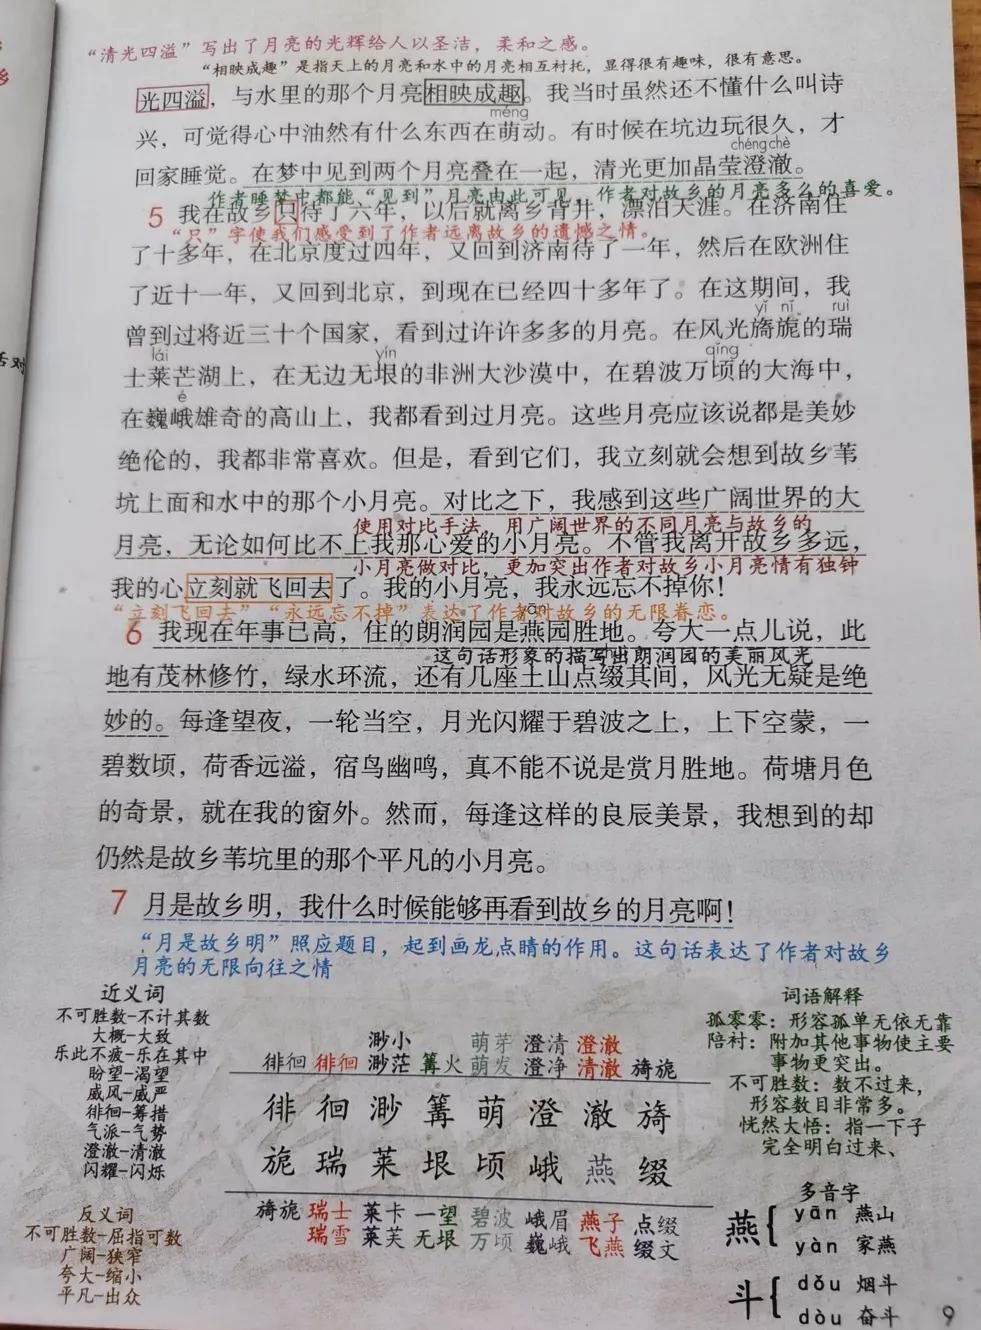 “清光四溢”写出了月亮的光辉给人以圣洁，柔和之感。
“相映成趣”是指天上的月亮和水中的月亮相互衬托，显得很有趣味，很有意思。
光四溢，与水里的那个月亮相映成趣。我当时虽然还不懂什么叫诗
méng
兴，可觉得心中油然有什么东西在萌动。有时候在坑边玩很久，才
chéng chè
回家睡觉。在梦中见到两个月亮叠在一起，清光更加晶莹澄澈。
作者睡梦中都能“见到”月亮由此可见，作者对故乡的月亮多么的喜爱。
5 我在故乡只待了六年，以后就离乡背井，漂泊天涯。在济南住
“只”字使我们感受到了作者远离故乡的遗憾之情。
了十多年，在北京度过四年，又回到济南待了一年，然后在欧洲住
了近十一年，又回到北京，到现在已经四十多年了。在这期间，我
yǐ nǐ ruì
曾到过将近三十个国家，看到过许许多多的月亮。在风光旖旎的瑞
lái yín qǐng
士莱芒湖上，在无边无垠的非洲大沙漠中，在碧波万顷的大海中，
é
在巍峨雄奇的高山上，我都看到过月亮。这些月亮应该说都是美妙
绝伦的，我都非常喜欢。但是，看到它们，我立刻就会想到故乡苇
坑上面和水中的那个小月亮。对比之下，我感到这些广阔世界的大
使用对比手法，用广阔世界的不同月亮与故乡的
月亮，无论如何比不上我那心爱的小月亮。不管我离开故乡多远，
小月亮做对比，更加突出作者对故乡小月亮情有独钟
我的心立刻就飞回去了。我的小月亮，我永远忘不掉你！
“立刻飞回去”“永远忘不掉”表达了作者对故乡的无限眷恋。
yān
6 我现在年事已高，住的朗润园是燕园胜地。夸大一点儿说，此
这句话形象的描写出朗润园的美丽风光
地有茂林修竹，绿水环流，还有几座土山点缀其间，风光无疑是绝
妙的。每逢望夜，一轮当空，月光闪耀于碧波之上，上下空蒙，一
碧数顷，荷香远溢，宿鸟幽鸣，真不能不说是赏月胜地。荷塘月色
的奇景，就在我的窗外。然而，每逢这样的良辰美景，我想到的却
仍然是故乡苇坑里的那个平凡的小月亮。
7 月是故乡明，我什么时候能够再看到故乡的月亮啊！
“月是故乡明”照应题目，起到画龙点睛的作用。这句话表达了作者对故乡
月亮的无限向往之情
近义词
不可胜数-不计其数
大概-大致
乐此不疲-乐在其中
盼望-渴望
威风-威严
徘徊-筹措
气派-气势
澄澈-清澈
闪耀-闪烁
反义词
不可胜数-屈指可数
广阔-狭窄
夸大-缩小
平凡-出众
渺小 萌芽 澄清 澄澈
徘徊 徘徊 渺茫 篝火 萌发 澄净 清澈 旖旎
徘 徊 渺 篝 萌 澄 澈 旖
旎 瑞 莱 垠 顷 峨 燕 缀
旖旎 瑞士 莱卡 一望 碧波 峨眉 燕子 点缀
瑞雪 莱芙 无垠 万顷 巍峨 飞燕 缀文
词语解释
孤零零：形容孤单无依无靠
陪衬：附加其他事物使主要
事物更突出。
不可胜数：数不过来，
形容数目非常多。
恍然大悟：指一下子
完全明白过来、
多音字
燕 yān 燕山
yàn 家燕
斗 dǒu 烟斗
dòu 奋斗
9